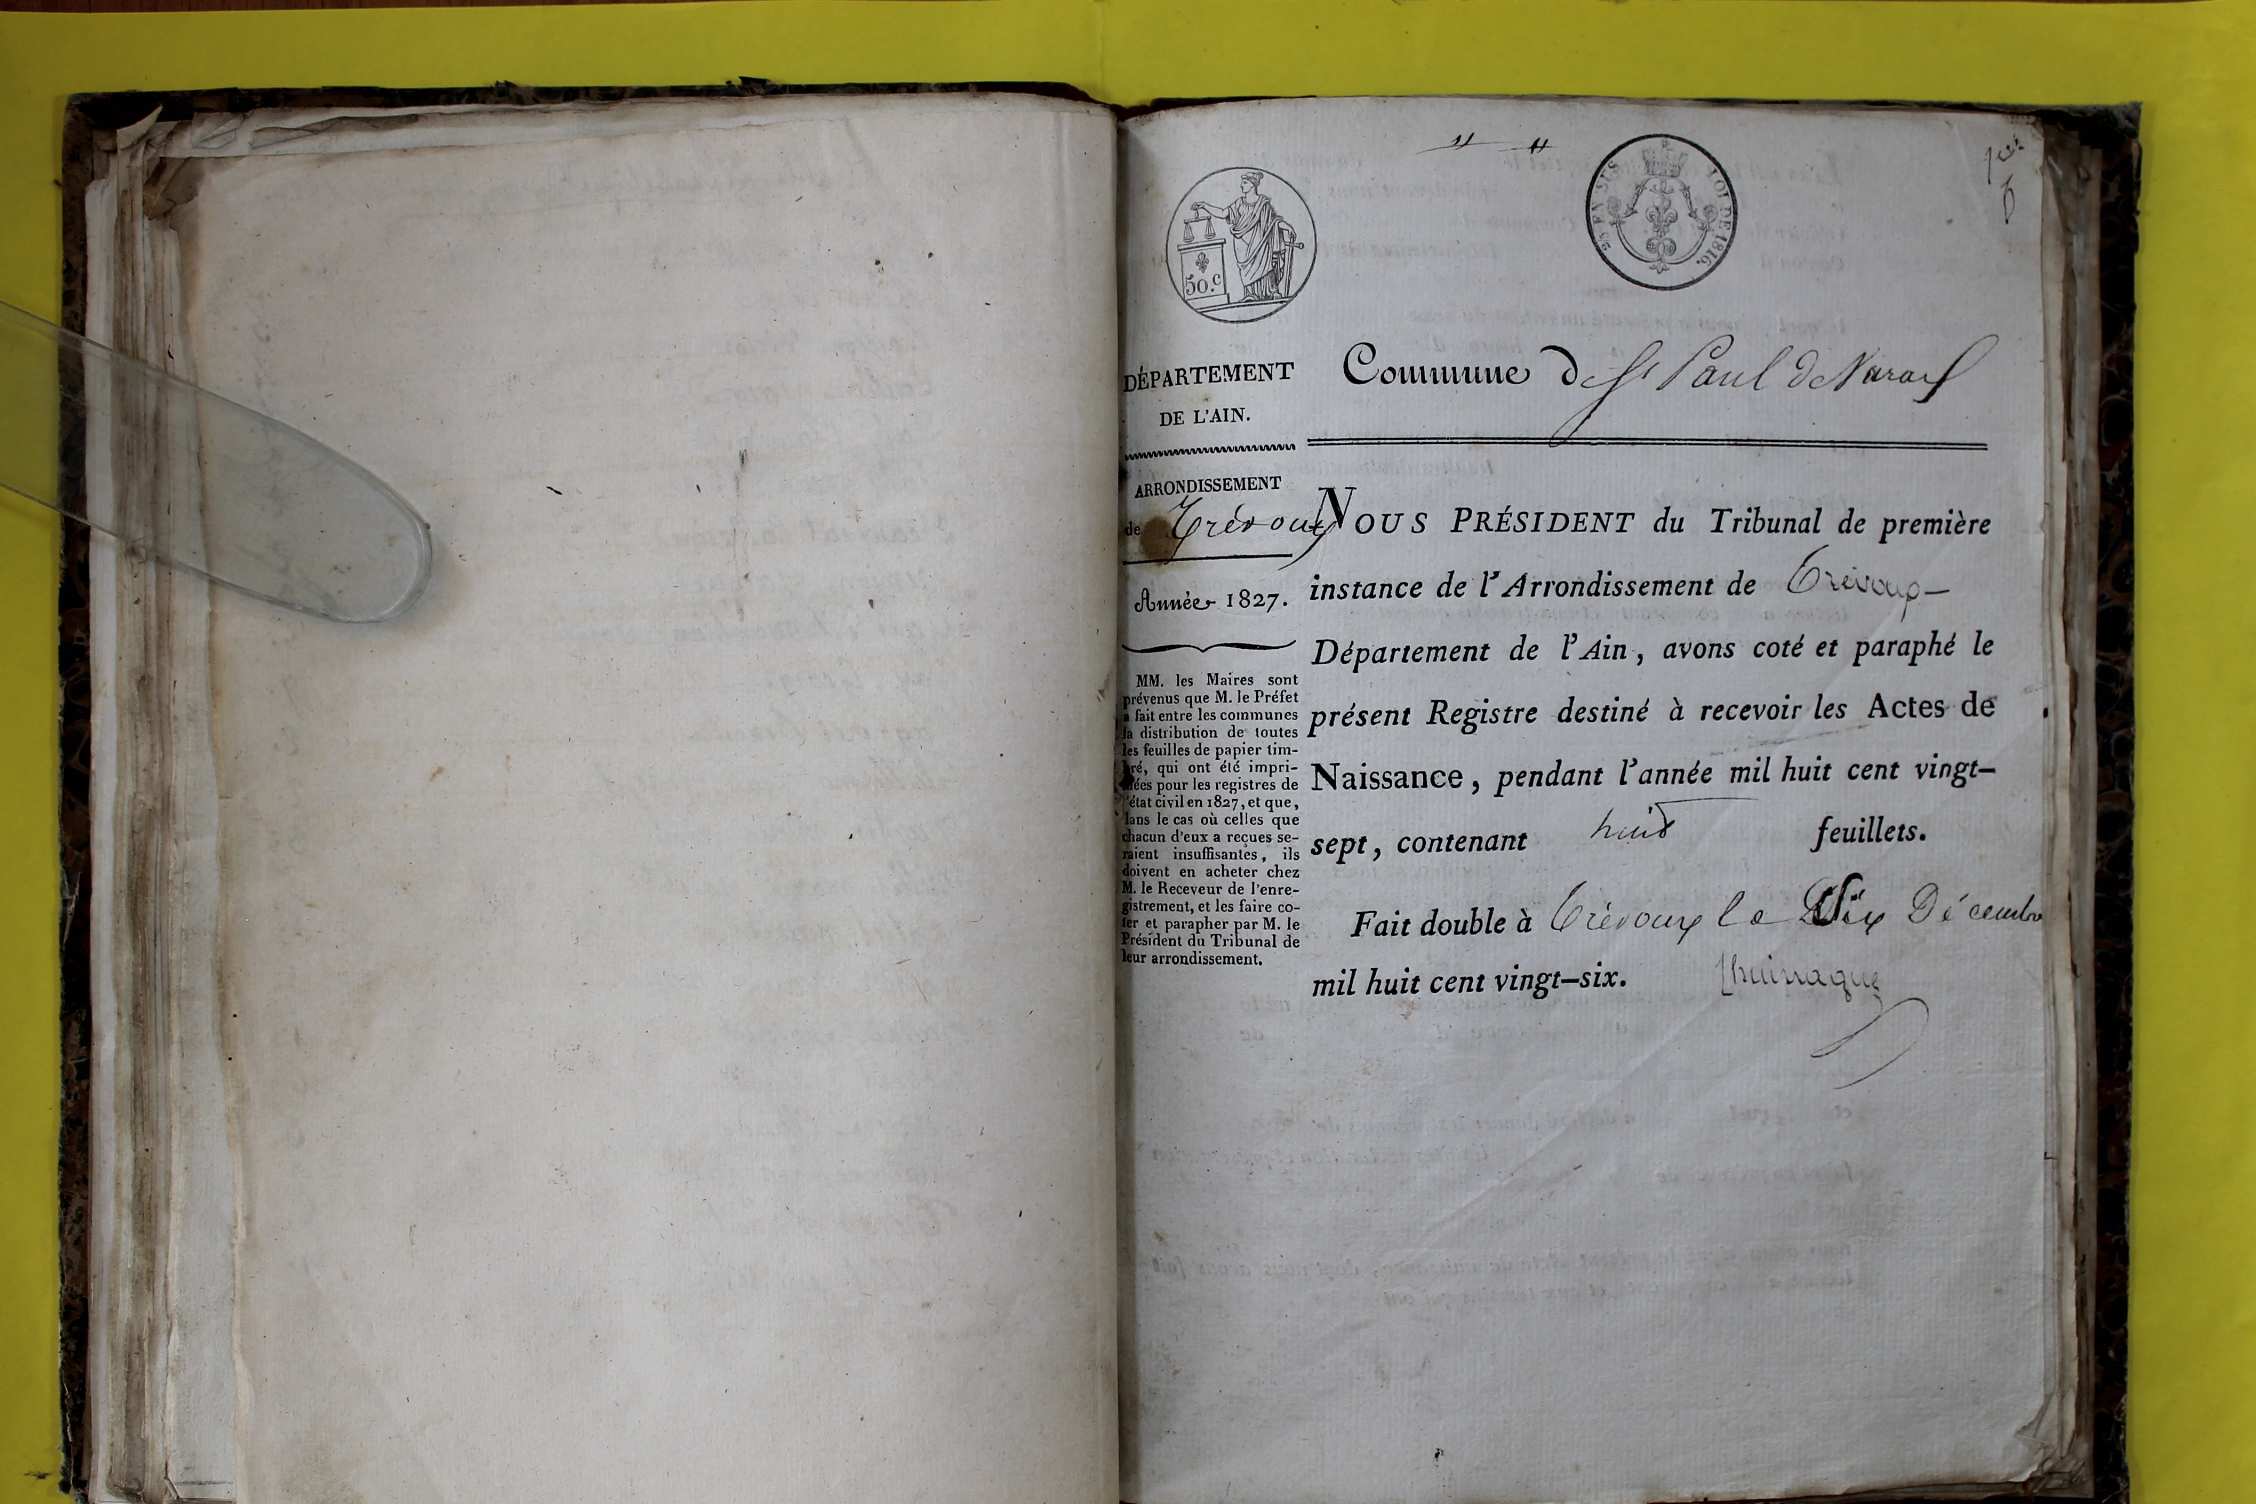 50.c
25 EN SUS LOI DE 1816.
1er
DÉPARTEMENT
DE L'AIN.
ARRONDISSEMENT
de Trévoux
Année 1827.
MM. les Maires sont
prévenus que M. le Préfet
a fait entre les communes
la distribution de toutes
les feuilles de papier tim-
bré, qui ont été impri-
mées pour les registres de
l'état civil en 1827, et que,
dans le cas où celles que
chacun d'eux a reçues se-
raient insuffisantes, ils
doivent en acheter chez
M. le Receveur de l'enre-
gistrement, et les faire co-
ter et parapher par M. le
Président du Tribunal de
leur arrondissement.
Commune de St Paul de Varax
NOUS PRÉSIDENT du Tribunal de première
instance de l'Arrondissement de Trévoux
Département de l'Ain, avons coté et paraphé le
présent Registre destiné à recevoir les Actes de
Naissance, pendant l'année mil huit cent vingt-
sept, contenant huit feuillets.
Fait double à Trévoux le Dix Décembre
mil huit cent vingt-six.